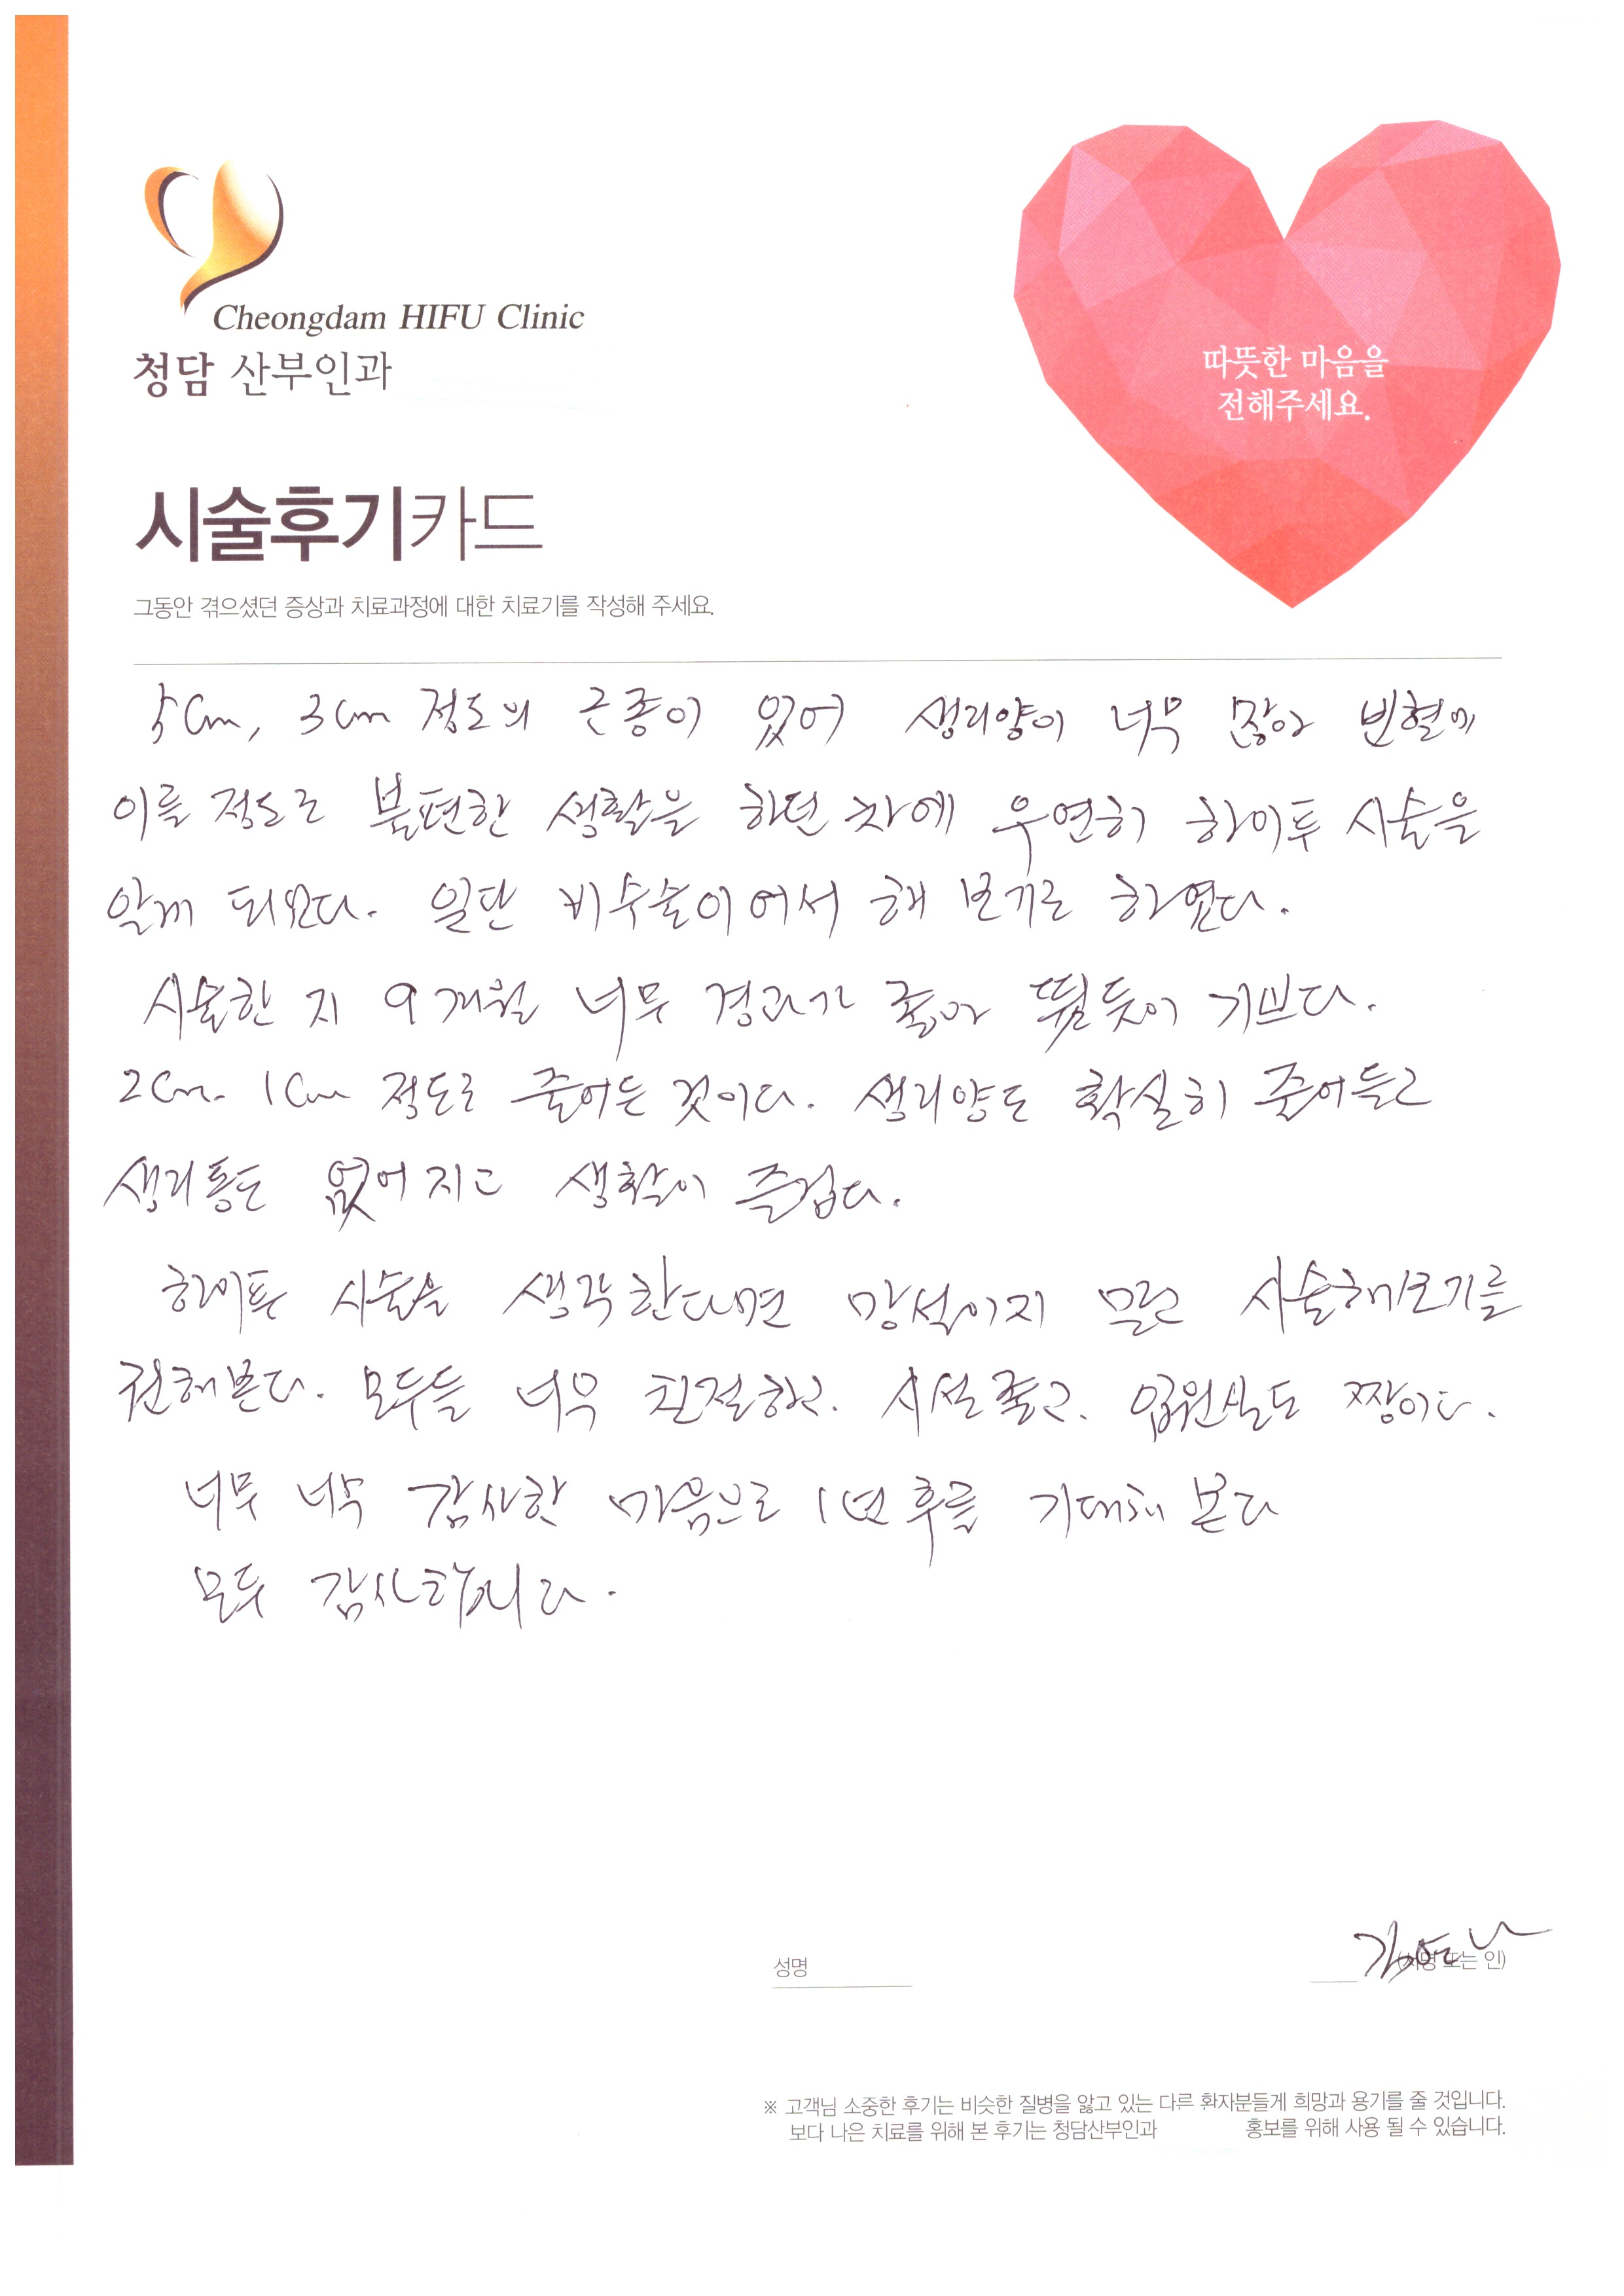 Cheongdam HIFU Clinic
청담 산부인과
따뜻한 마음을
전해주세요.
시술후기카드
그동안 겪으셨던 증상과 치료과정에 대한 치료기를 작성해 주세요.
5cm, 3cm 정도의 근종이 있어 생리양이 너무 많아 빈혈에
이를 정도로 불편한 생활을 하던 차에 우연히 하이푸 시술을
알게 되었다. 일단 비수술이어서 해 보기로 하였다.
시술한 지 9개월 너무 경과가 좋아 뛸듯이 기쁘다.
2cm. 1cm 정도로 줄어든 것이다. 생리양도 확실히 줄어들고
생리통도 없어지고 생활이 즐겁다.
하이푸 시술을 생각한다면 망설이지 말고 시술해보기를
권해본다. 모두들 너무 친절하고. 시설좋고. 입원실도 짱이다.
너무 너무 감사한 마음으로 1년 후를 기대해 본다
모두 감사합니다.
성명
(서명 또는 인)
※ 고객님 소중한 후기는 비슷한 질병을 앓고 있는 다른 환자분들게 희망과 용기를 줄 것입니다.
보다 나은 치료를 위해 본 후기는 청담산부인과 홍보를 위해 사용 될 수 있습니다.